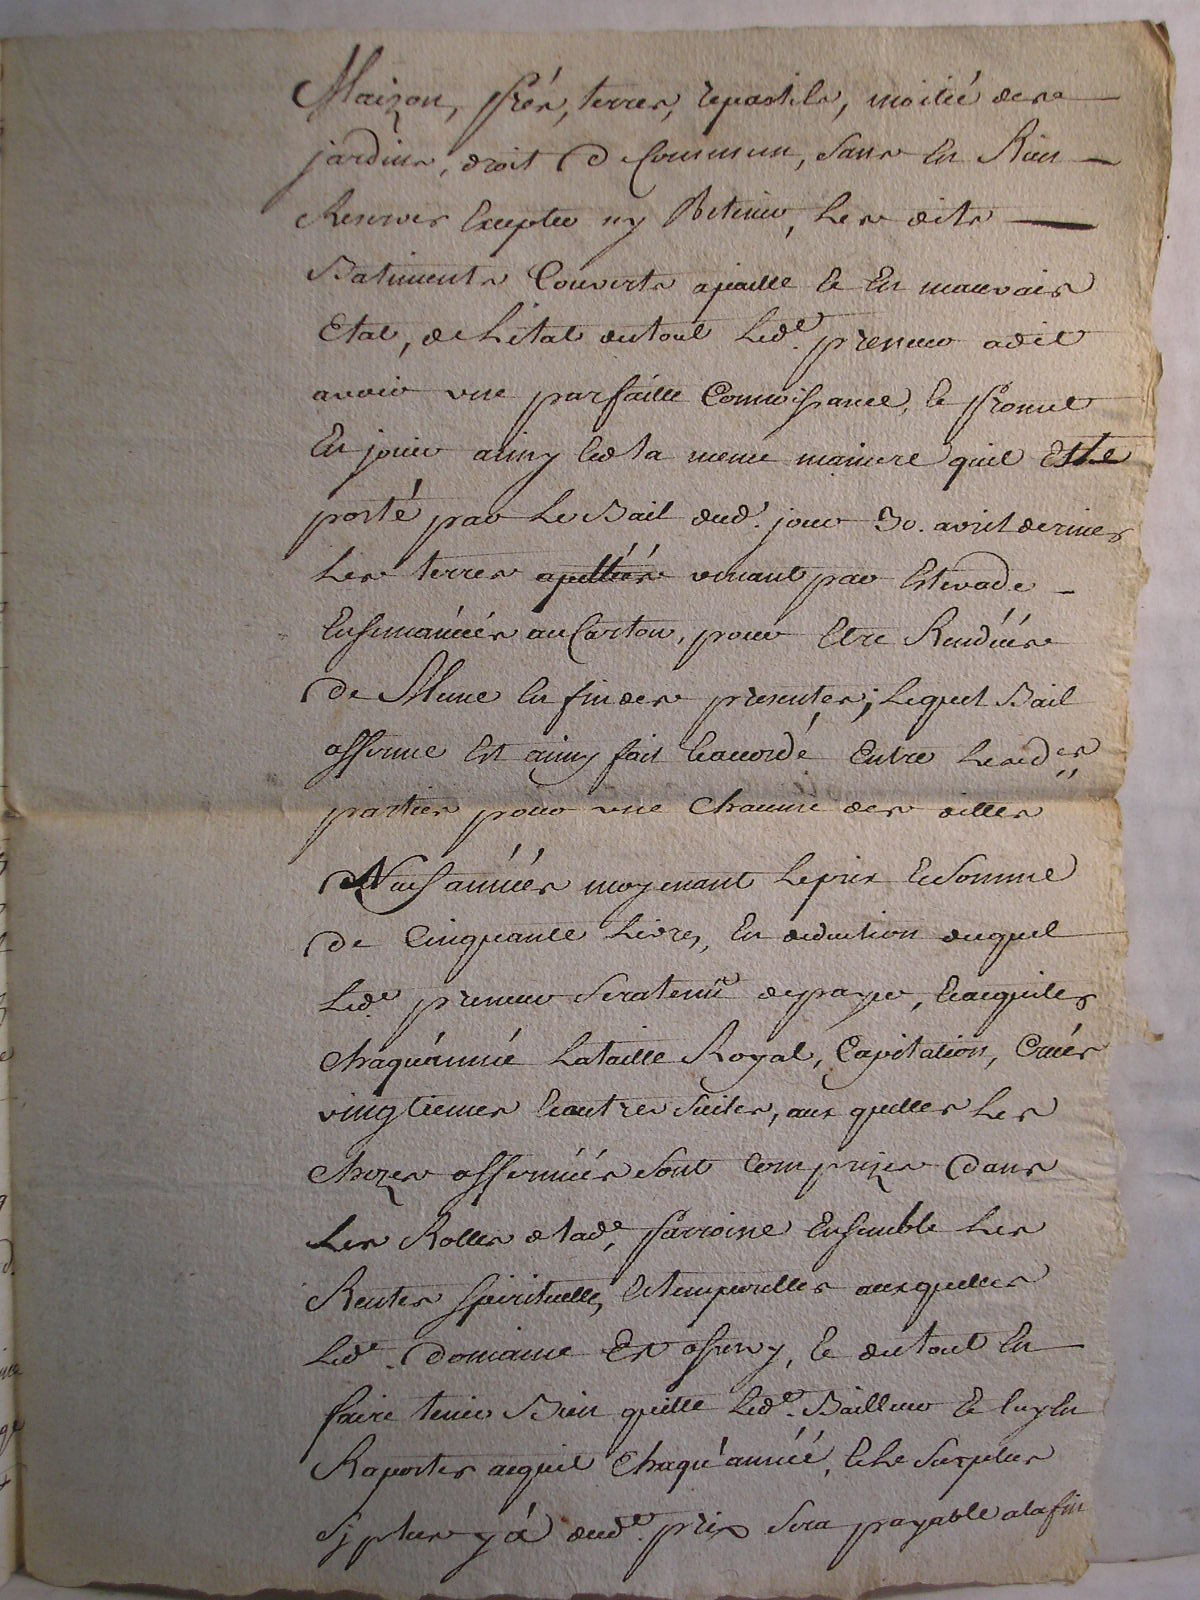 Maizon, prés, terres, repastils, moitié des
jardins, droit de Commun, sans En Rien
Reserver Excepter ny Retenir, Les dits
Batiments Couverts apaille Et En mauvais
Etat, de L'état dutout Led.t preneur adit
avoir une parfaitte Connoissance, Et promet
En jouir ainsy Et de la meme maniere quil Este
porté par Le Bail dud. jour 30. avril dernier
Les terres venant par Estevade
Ensemancées au Carton, pour Etre Renduës
de Meme En fin des presentes; Lequel Bail
afferme Est ainsy fait Et accordé Entre Lesd.es
parties pour une Chacune des dittes
Neuf années moyenant Leprix Et Somme
de Cinquante Livres, En deduction duquel
Led.t preneur Sera tenu depayer, Et acquiter
Chaqu'année La taille Royal, Capitation, Crués
vingtiemes Et autres Suites, aux quelles Les
Chozes affermées Sont Comprizes Dans
Les Rolles de lad.e parroise Ensemble Les
Rentes Spirituelles, Et temporelles auxquelles
Led.t Domaine Est asservy, Et dutout En
faire tenir Bien quitte Led.t Bailleur Et luy En
Raporter acquit Chaqu'année, Et Le Surplus
Sy plus y á dud.t prix Sera payable alafin